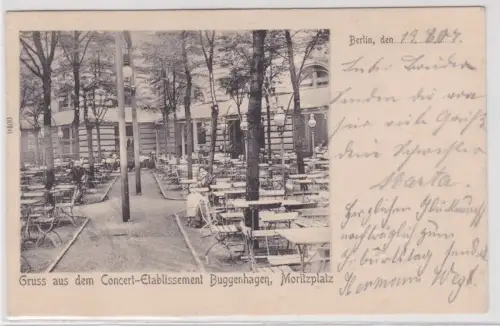 Berlin, den 19.8.04.
Liebe Brüder
senden dir von
hier viele Grüße
deine Schwester
Marta.
Herzlichen Glückwunsch
nachträglich zum
Geburtstag sendet
Hermann
Gruss aus dem Concert-Etablissement Buggenhagen, Moritzplatz